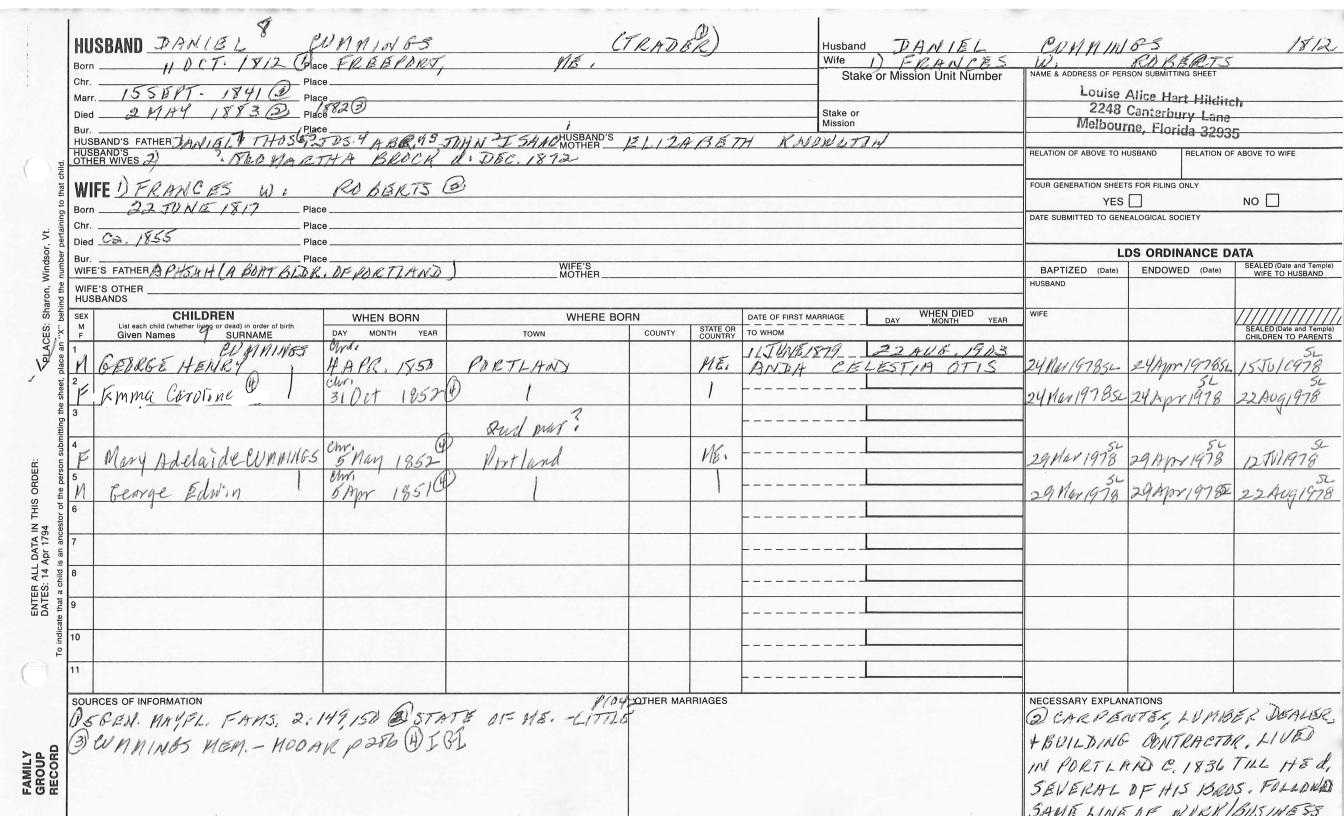 8
HUSBAND DANIEL CUMMINGS (TRADER) ①
Born 11 OCT. 1812 ① Place FREEPORT, ME.
Chr. Place
Marr. 15 SEPT. 1841 ② Place
Died 2 MAY 1883 ② Place 1882 ③
Bur. Place
HUSBAND'S FATHER DANIEL 7 THOS. JOHN ISAAC HUSBAND'S MOTHER ELIZABETH KNOWLTON
HUSBAND'S OTHER WIVES 2) MARTHA BROCK d. DEC. 1872
WIFE 1) FRANCES W. ROBERTS ②
Born 22 JUNE 1817 Place
Chr. Place
Died Ca. 1855 Place
Bur. Place
WIFE'S FATHER (A BOAT BLDR. OF PORTLAND) WIFE'S MOTHER
WIFE'S OTHER HUSBANDS
Husband DANIEL CUMMINGS 1812
Wife 1) FRANCES W. ROBERTS
Stake or Mission Unit Number
Stake or Mission
NAME & ADDRESS OF PERSON SUBMITTING SHEET
Louise Alice Hart Hilditch
2248 Canterbury Lane
Melbourne, Florida 32935
RELATION OF ABOVE TO HUSBAND RELATION OF ABOVE TO WIFE
FOUR GENERATION SHEETS FOR FILING ONLY
YES NO
DATE SUBMITTED TO GENEALOGICAL SOCIETY
LDS ORDINANCE DATA
BAPTIZED (Date) ENDOWED (Date) SEALED (Date and Temple) WIFE TO HUSBAND
HUSBAND
WIFE
SEALED (Date and Temple) CHILDREN TO PARENTS
SEX M F
CHILDREN
List each child (whether living or dead) in order of birth
Given Names 9 SURNAME
WHEN BORN
DAY MONTH YEAR
WHERE BORN
TOWN COUNTY STATE OR COUNTRY
DATE OF FIRST MARRIAGE
TO WHOM
WHEN DIED
DAY MONTH YEAR
1 CUMMINGS 11 JUNE 1879 22 AUG. 1903
M GEORGE HENRY 4 APR. 1850 PORTLAND ME. ANNA CELESTIA OTIS 24 Mar 1978 SL 24 Apr 1978 SL 15 Jul 1978 SL
2 Chr.
F Emma Caroline ④ 31 Oct 1852 ④ 24 Mar 1978 SL 24 Apr 1978 SL 22 Aug 1978
3 2nd mar?
4 Chr.
F Mary Adelaide CUMMINGS 5 May 1852 ④ Portland ME. 29 Mar 1978 SL 29 Apr 1978 SL 12 Jul 1978 SL
5 Chr.
M George Edwin 5 Apr 1851 ④ 29 Mar 1978 SL 29 Apr 1978 SL 22 Aug 1978 SL
6
7
8
9
10
11
SOURCES OF INFORMATION
① 5 GEN. MAYFL. FAMS. 2:149,150 ② STATE OF ME. - LITTLE p104
③ CUMMINGS MEM. - MOOAR p286 ④ IGI
OTHER MARRIAGES
NECESSARY EXPLANATIONS
② CARPENTER, LUMBER DEALER,
+ BUILDING CONTRACTOR, LIVED
IN PORTLAND C. 1836 TILL HE d,
SEVERAL OF HIS BROS. FOLLOWED
SAME LINE OF WORK/BUSINESS
PLACES: Sharon, Windsor, Vt.
ENTER ALL DATA IN THIS ORDER:
DATES: 14 Apr 1794
To indicate that a child is an ancestor of the person submitting the sheet, place an "X" behind the number pertaining to that child.
FAMILY GROUP RECORD